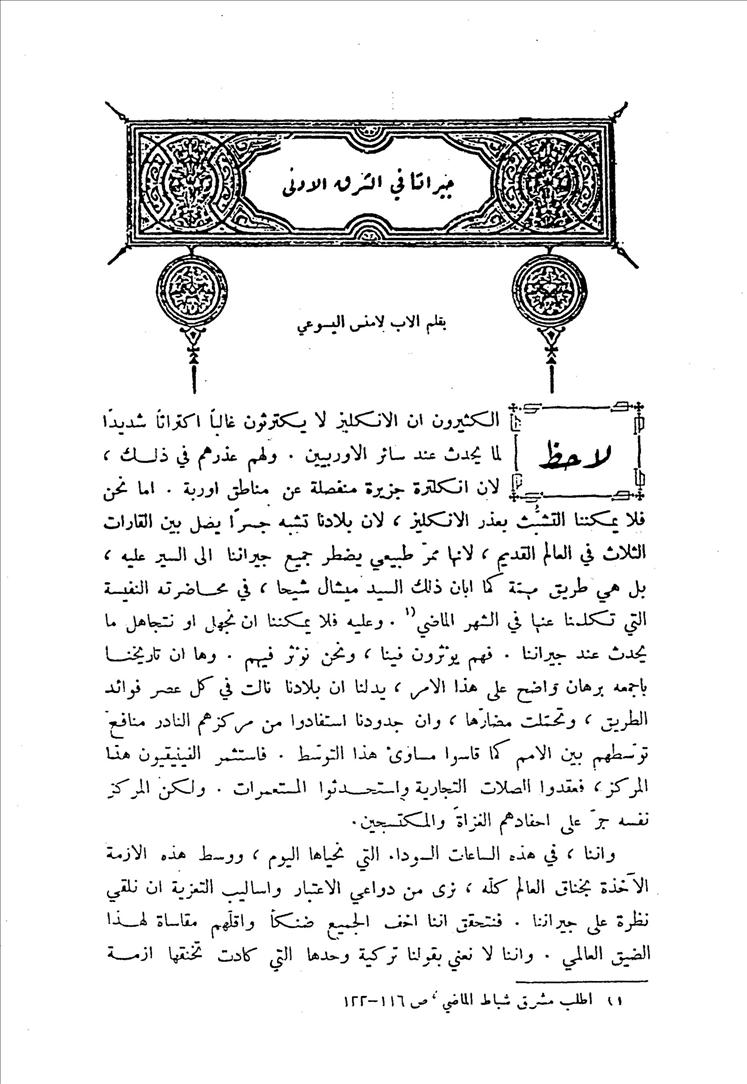 جيراننا في الشرق الادنى
بقلم الاب لامنس اليسوعي
لاحظ
الكثيرون ان الانكليز لا يكترثون غالباً اكتراثاً شديدًا
لما يحدث عند سائر الاوربيين . ولهم عذرهم في ذلك ،
لان انكلترة جزيرة منفصلة عن مناطق اوربة . اما نحن
فلا يمكننا التشبُّث بعذر الانكليز ، لان بلادنا تشبه جسرًا يصل بين القارات
الثلاث في العالم القديم ، لانها ممرّ طبيعي يضطر جميع جيراننا الى السير عليه ،
بل هي طريق ميتة كما ابان ذلك السيد ميشال شيحا ، في محاضرته النفيسة
التي تكلمنا عنها في الشهر الماضي ١) . وعليه فلا يمكننا ان نجهل او نتجاهل ما
يحدث عند جيراننا . فهم يوثرون فينا ، ونحن نوثر فيهم . وها ان تاريخنا
باجمعه برهان واضح على هذا الامر ، يدلنا ان بلادنا نالت في كل عصر فوائد
الطريق ، وتحمّلت مضارّها ، وان جدودنا استفادوا من مركزهم النادر منافع
توسّطهم بين الامم كما قاسوا مساوئ هذا التوسّط . فاستثمر الفينيقيون هذا
المركز ، فعقدوا الصلات التجارية واستحدثوا المستعمرات . ولكن المركز
نفسه جرّ على احفادهم الغزاة والمكتسحين.
واننا ، في هذه الساعات السوداء التي نحياها اليوم ، ووسط هذه الازمة
الآخذة بخناق العالم كلّه ، نرى من دواعي الاعتبار واساليب التعزية ان نلقي
نظرة على جيراننا . فنتحقق اننا اخف الجميع ضنكاً واقلّهم مقاساة لهذا
الضيق العالمي . واننا لا نعني بقولنا تركية وحدها التي كادت تخنقها ازمة
١) اطلب مشرق شباط الماضي ، ص ١١٦-١٢٢